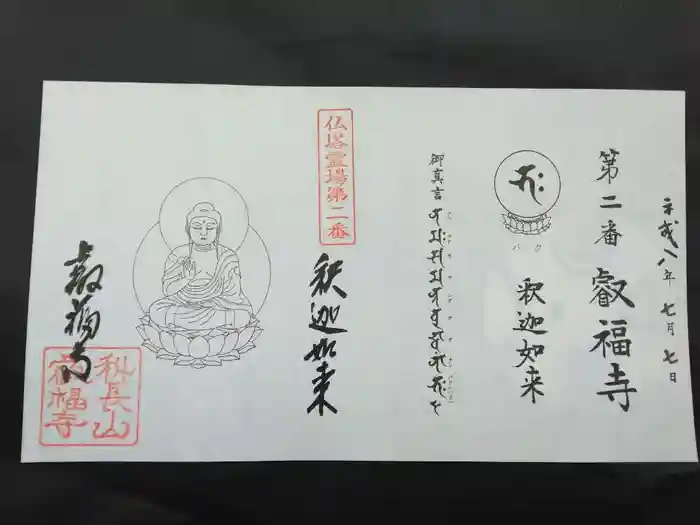 平成八年七月七日
第二番 叡福寺
バク
釈迦如来
御真言
仏塔霊場第二番
釈迦如来
叡福寺
科長山
叡福寺